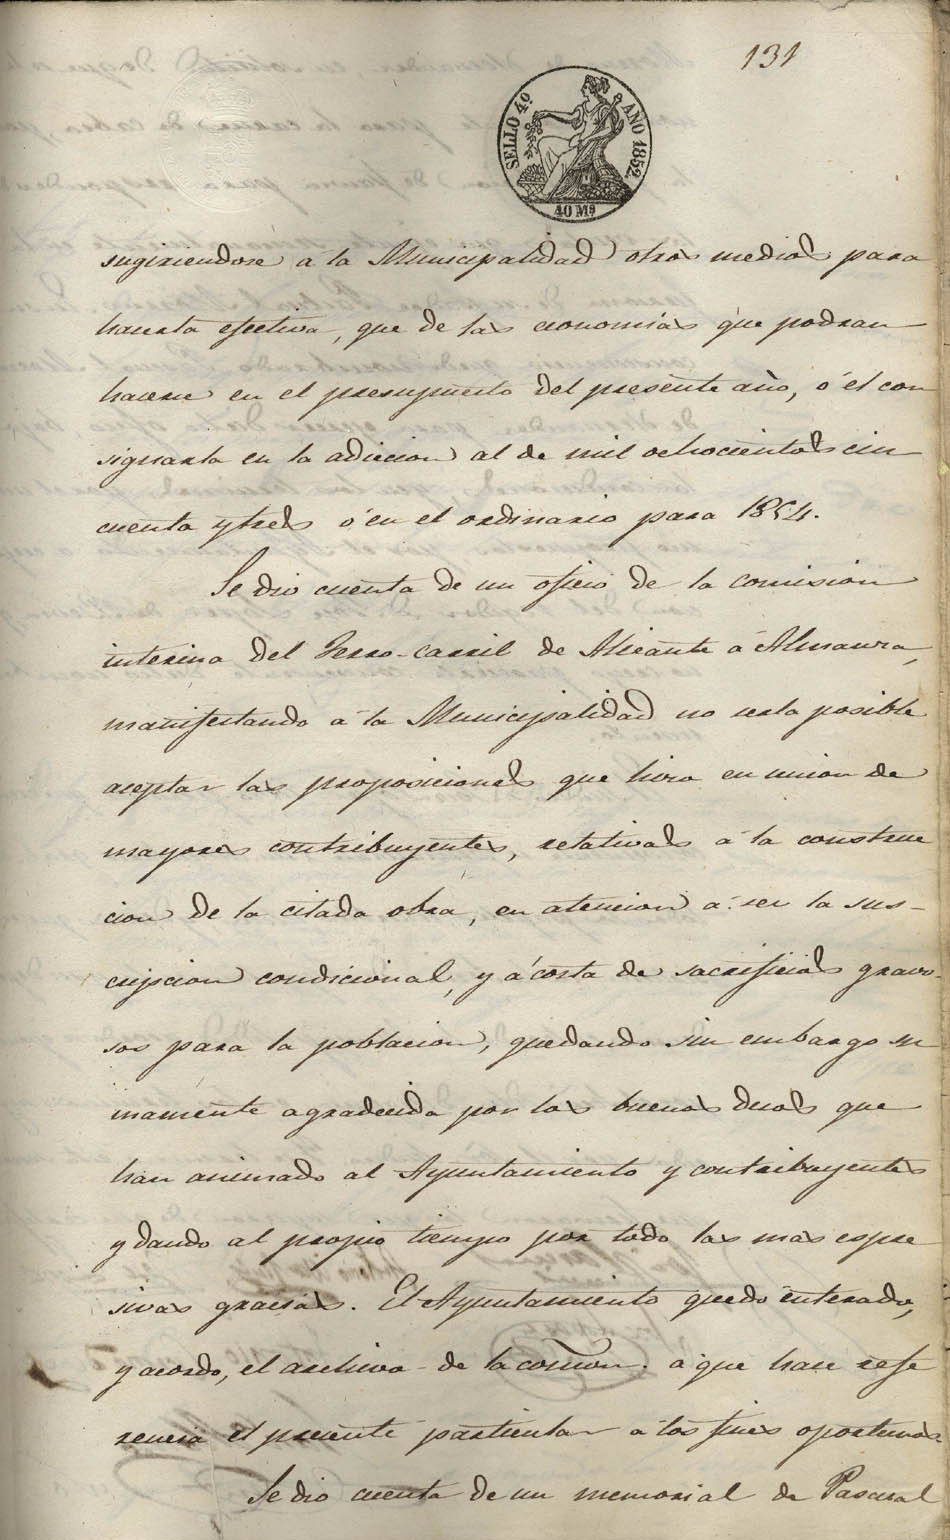 131
SELLO 4º AÑO 1852.
40 Ms
sugiriendose á la Municipalidad otros medios para
hacerla efectiva, que de las economias que podran
hacerse en el presupuesto del presente año, ó el con
signarla en la adiccion al de mil ochocientos cin
cuenta ytres ó en el ordinario para 1854.
Se dio cuenta de un oficio de la comision
interina del Ferro-carril de Alicante á Almansa,
manifestando á la Municipalidad no serla posible
aceptar las proposiciones que hizo en union de
mayores contribuyentes, relativas á la construc
cion de la citada obra, en atencion á ser la sus-
cripcion condicional, y á costa de sacrificios gravo-
sos para la poblacion, quedando sin embargo su
mamente agradecida por los buenos deseos que
han animado al Ayuntamiento y contribuyentes
y dando al propio tiempo por todo las mas espre
sivas gracias. El Ayuntamiento quedó enterado,
y acordo, el archivo de la comon. a que hace refe
rencia el presente particular á los fines oportunos.
Se dio cuenta de un memorial de Pascual